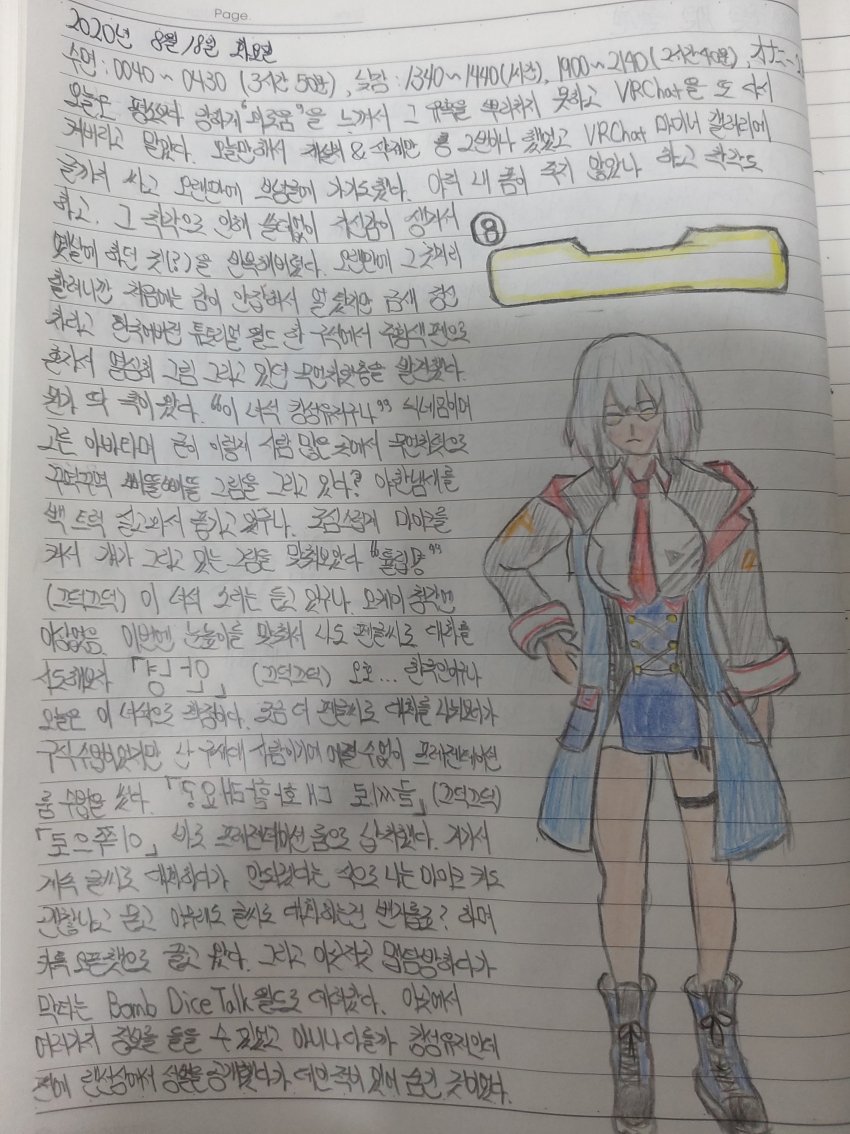 Page.
2020년 8월 18일 화요일
수면 : 0040 ~ 0430 (3시간 50분), 낮잠 : 1340 ~ 1440 (1시간), 1900 ~ 2140 (2시간 40분),
오늘도 평소보다 강하게 "외로움"을 느껴서 그 유혹을 뿌리치지 못하고 VRChat을 또 다시
켜버리고 말았다. 오늘만해서 재설치 & 삭제만 총 2번이나 했었고 VRChat 마이너 갤러리에
글까지 싸고 오랜만에 브냥꾼에 가기도 했다. 아직 내 폼이 죽지 않았나 하고 착각도
하고. 그 착각으로 인해 쓸데없이 자신감이 생겨서
옛날에 하던 짓(?)을 반복해버렸다. 오랜만에 그 짓거리
할려니깐 처음에는 감이 안잡혀서 얼탔지만 금새 정신
차리고 한국어버전 튜토리얼 월드 한 구석에서 주황색 펜으로
혼자서 열심히 그림 그리고 있던 무언챗충을 발견했다.
뭔가 딱 촉이 왔다. "이 녀석 킹성유저구나" 닉네임이며
고른 아바타며 굳이 이렇게 사람 많은 곳에서 무언챗으로
꾸덕꾸역 삐뚤삐뚤 그림을 그리고 있다? 야한냄새를
백 트럭 싣고와서 풍기고 있구나. 조심스럽게 마이크를
켜서 걔가 그리고 있는 그림을 맞춰보았다 "튤립?"
(끄덕끄덕) 이 녀석 소리는 듣고 있구나. 오케이 청각엔
이상없음. 이번엔 눈높이를 맞춰서 나도 펜글씨로 대화를
시도해보자 (끄덕끄덕) 오호... 한국인이구나
오늘은 이 녀석으로 확정이다. 조금 더 펜글씨로 대화를 나눠보다가
구식수법이었지만 난 구세대 사람이기에 어쩔 수 없이 프레젠테이션
룸 수법을 썼다. (끄덕끄덕)
바로 프레젠테이션 룸으로 납치했다. 거기서
계속 글씨로 대화하다가 안되겠다는 식으로 나는 마이크 켜도
괜찮냐고 묻고 아무래도 글씨로 대화하는건 번거롭죠? 하며
카톡 오픈챗으로 끌고 왔다. 그리고 이곳저곳 맵탐방하다가
막타는 Bomb Dice Talk 월드로 데려갔다. 이곳에서
여러가지 정보를 들을 수 있었고 아니나다를까 킹성유저인데
전에 랜선상에서 성별을 공개했다가 데인 적이 있어 숨긴 것이었다.
⑧